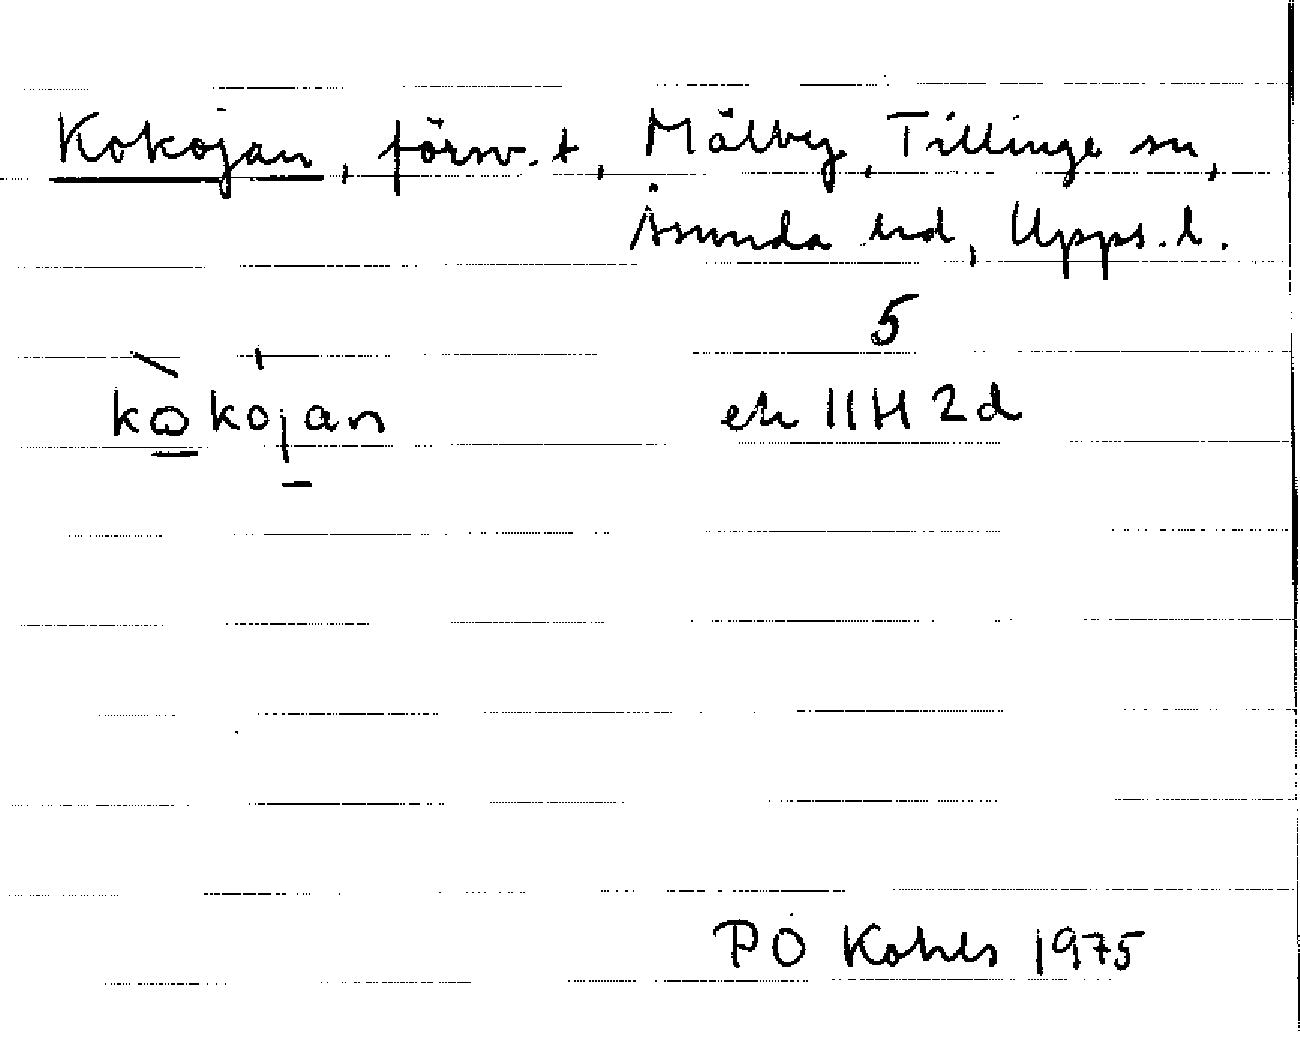 Kokojan, försv. t, Mälby, Tillinge sn,
Åsunda hd, Upps. l.
5
kokojan ek 11H 2d
PO Kohls 1975